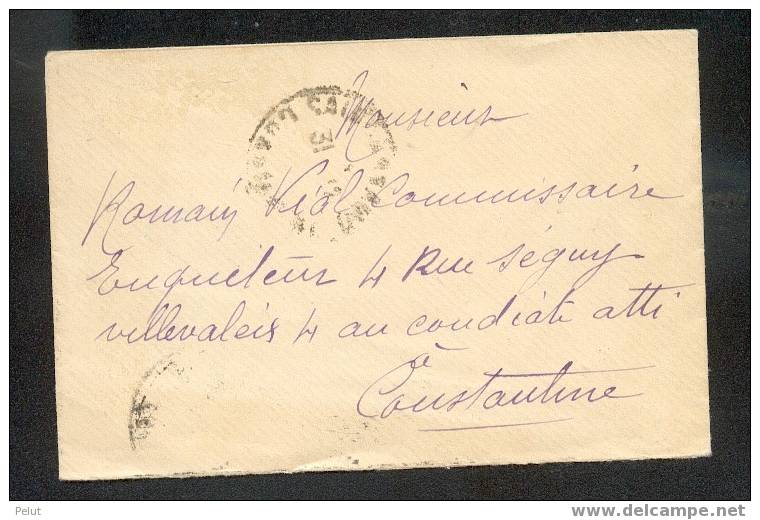 Monsieur
Romain Vial Commissaire
Enqueteur 4 Rue Séguy
villevaleis 4 au condiat atti
à
Constantine
31
Pelut
www.delcampe.net